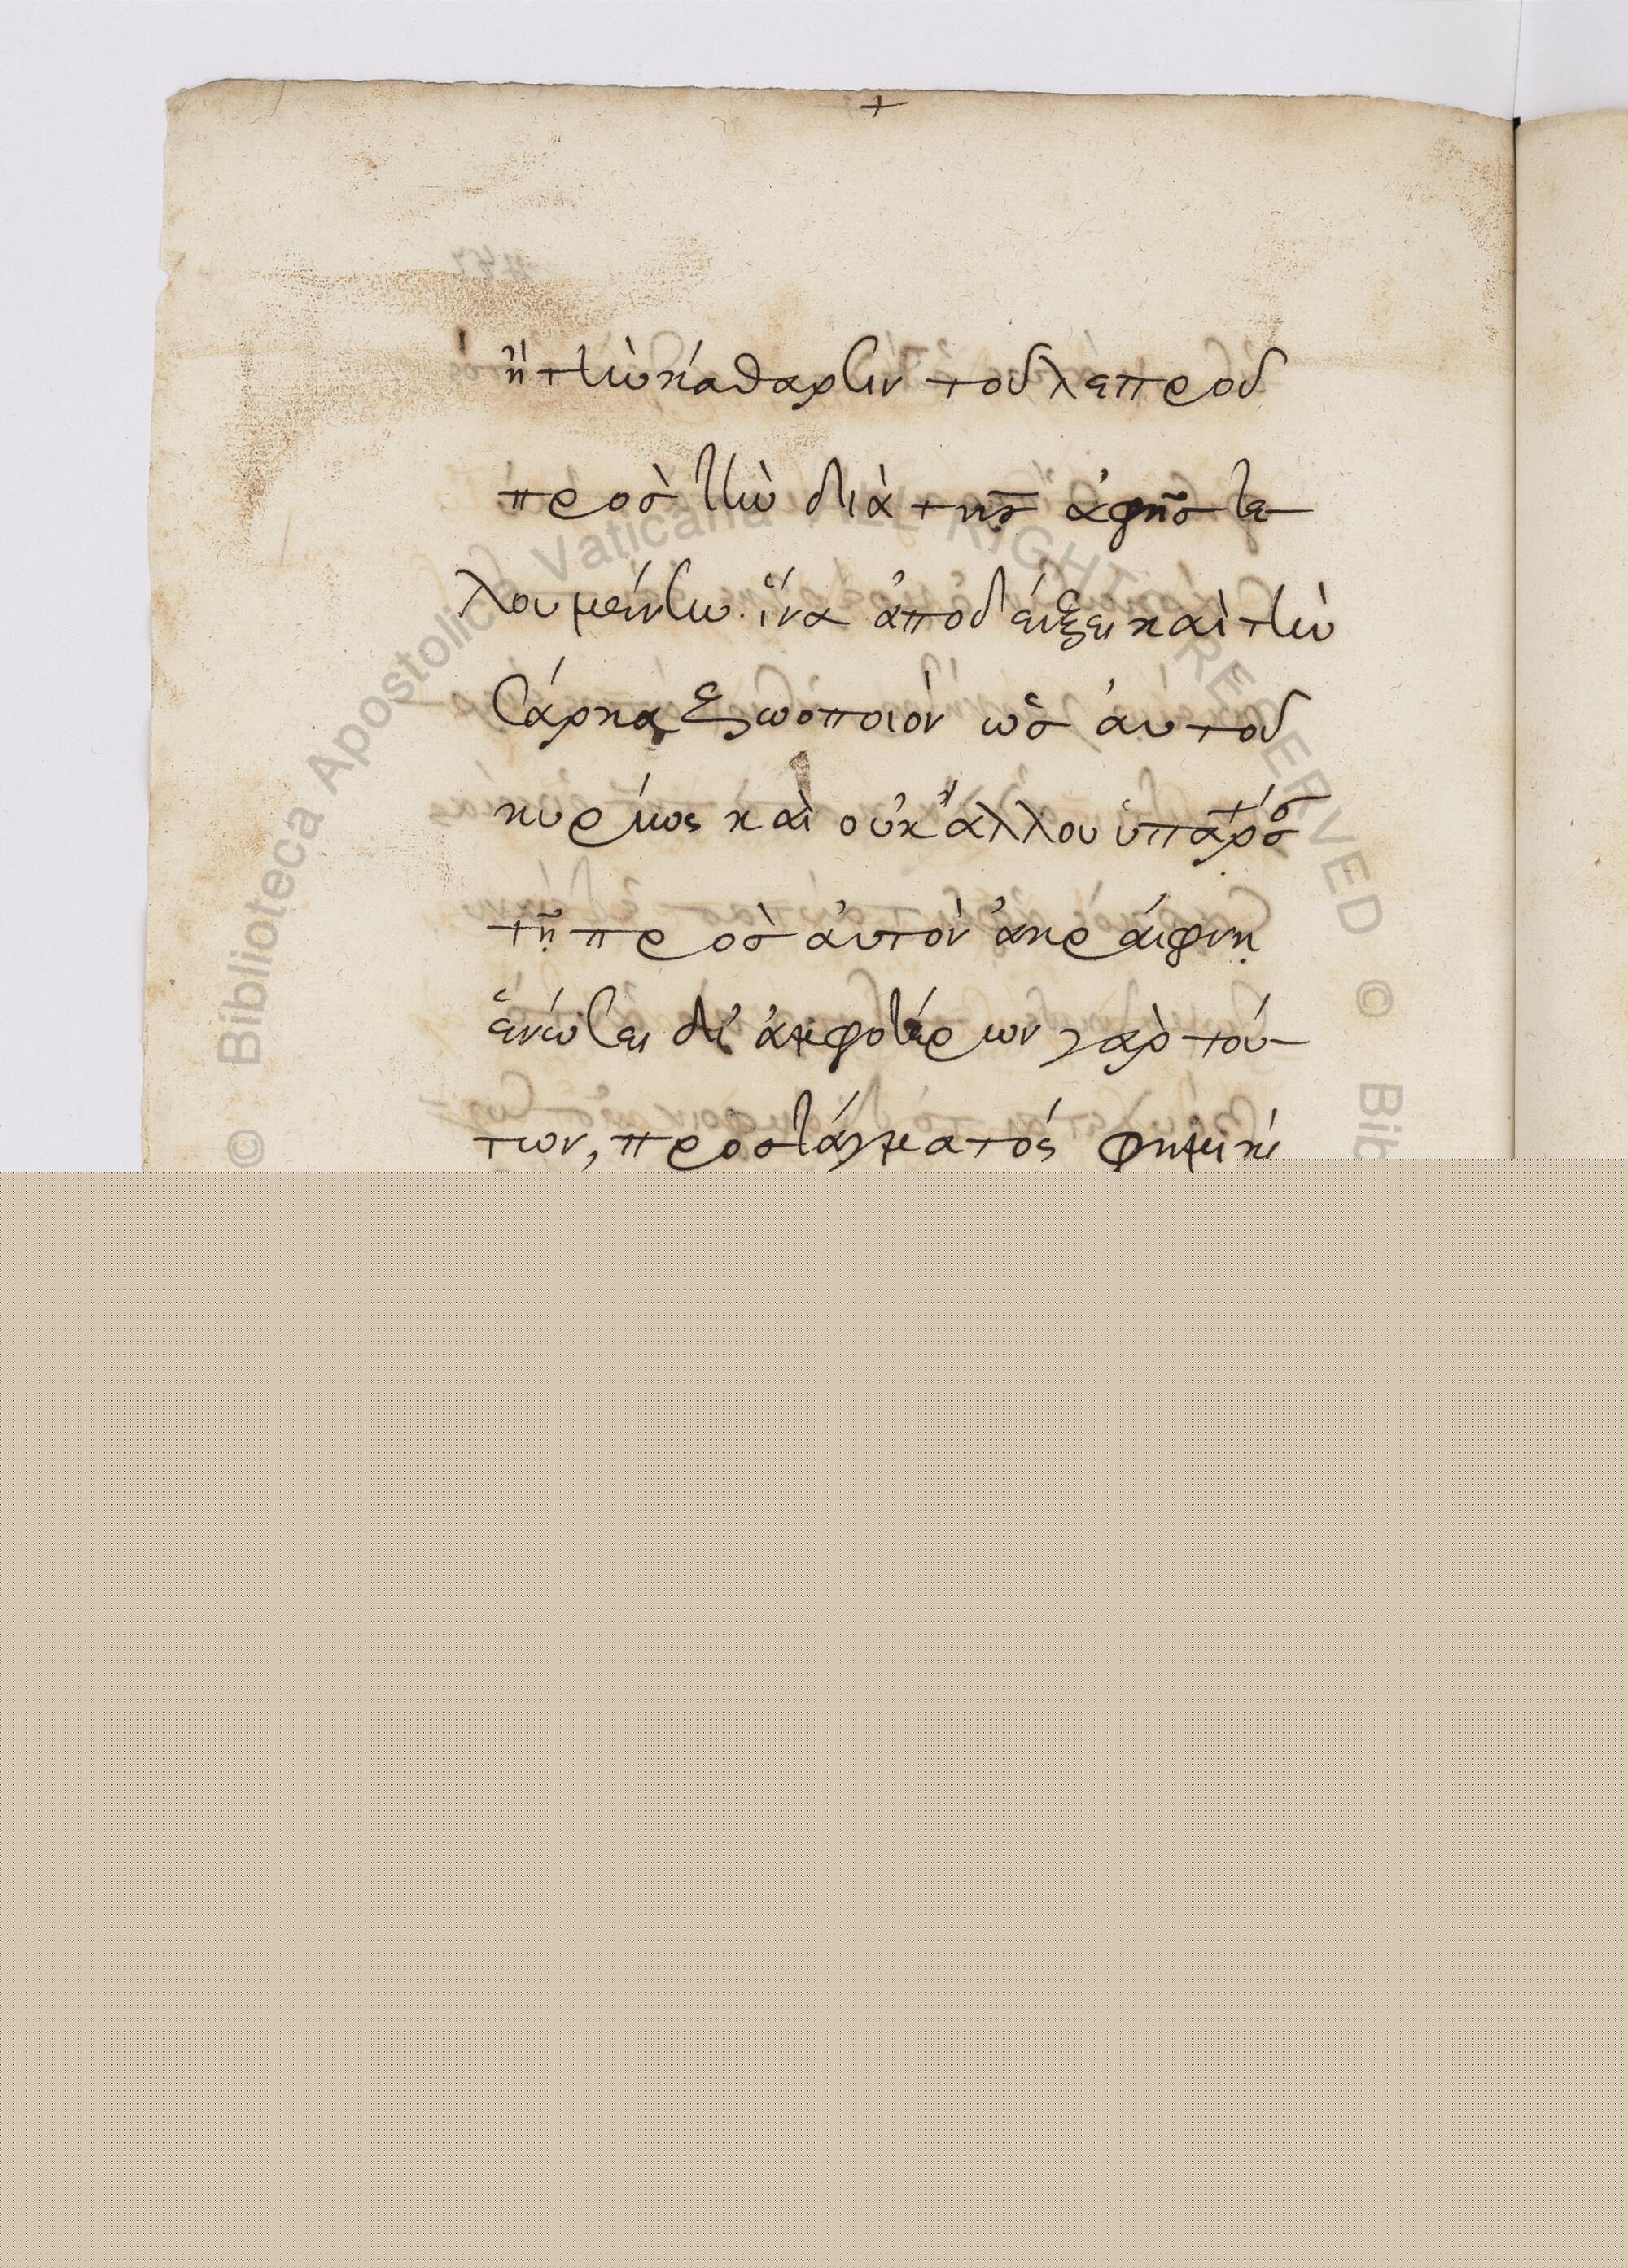 +
ἢ τὴν κάθαρσιν τοῦ λεπροῦ
πρὸς τὴν διὰ τῆς ἁφῆς τε-
λουμένην. ἵνα ἀποδείξει καὶ τὴν
σάρκα ζωοποιὸν ὡς ἀυτοῦ
κυρίως καὶ οὐκ ἄλλου
τῇ πρὸς ἀυτὸν ἀκραίφνη
ἑνώσει δι' ἀμφοτέρων γὰρ τού-
των, προστάγματός φημι κὶ
© Biblioteca Apostolica Vaticana ALL RIGHTS RESERVED © Bib